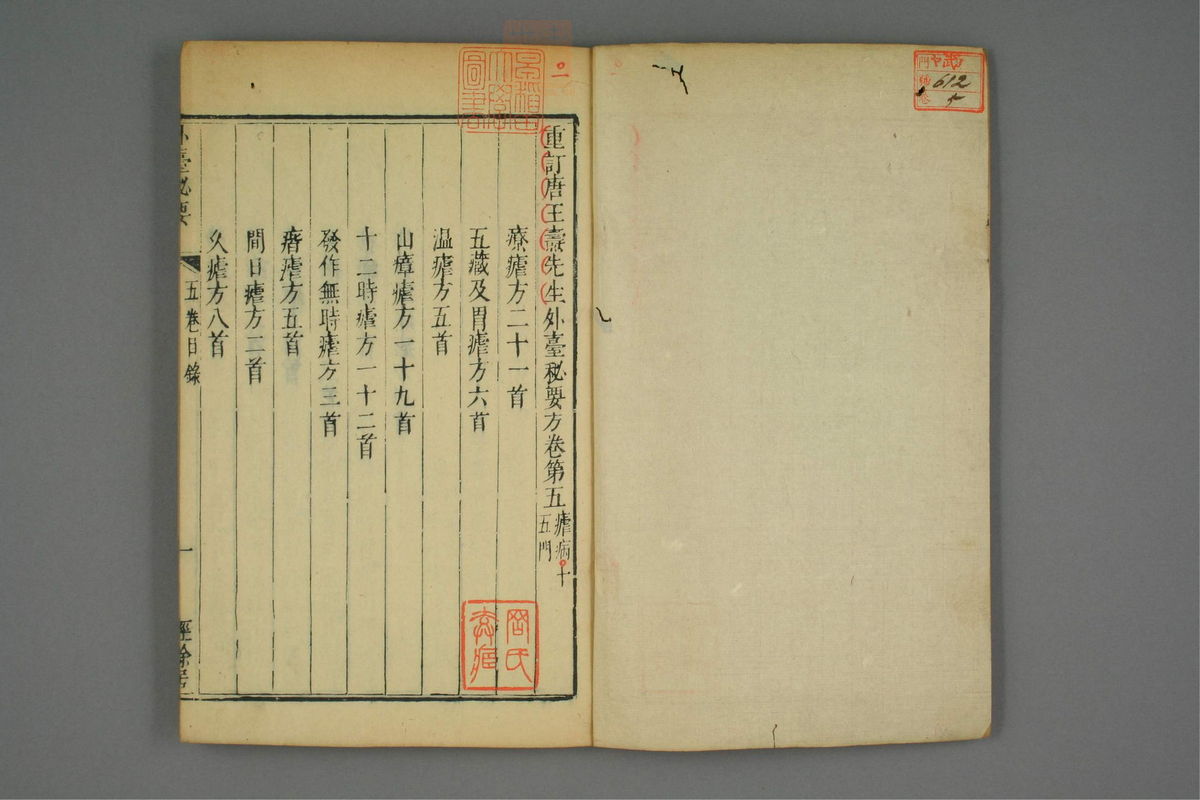 門 号 巻
612
重訂唐王燾先生外臺秘要方卷第五 瘧病十五門
療瘧方二十一首
五藏及胃瘧方六首
温瘧方五首
山瘴瘧方一十九首
十二時瘧方一十二首
發作無時瘧方三首
瘄瘧方五首
間日瘧方二首
久瘧方八首
外臺秘要
五卷目錄
一
經餘居